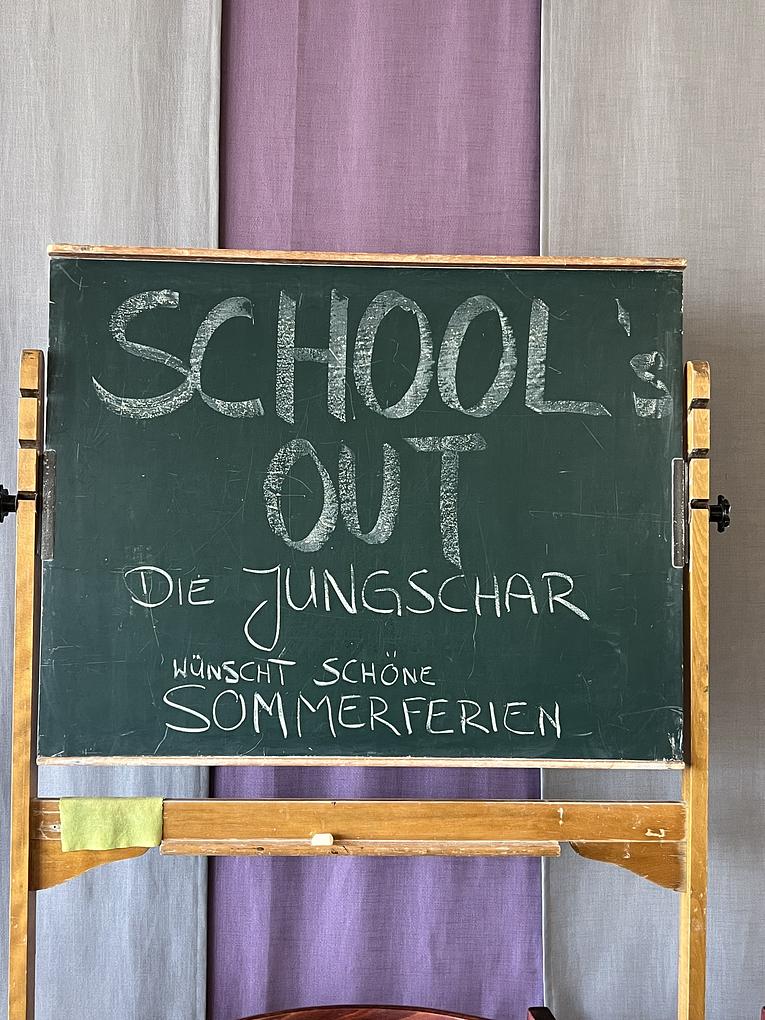 SCHOOL'S
OUT
DIE JUNGSCHAR
WÜNSCHT SCHÖNE
SOMMERFERIEN